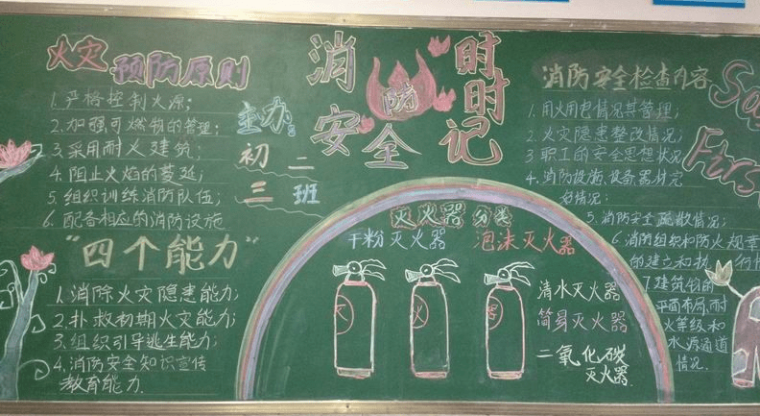 火灾
预防原则
1.严格控制火源;
2.加强可燃物的管理;
3.采用耐火建筑;
4.阻止火焰的蔓延;
5.组织训练消防队伍;
6.配备相应的消防设施
"四个能力"
1.消除火灾隐患能力;
2.扑救初期火灾能力;
3.组织引导逃生能力;
4.消防安全知识宣传
教育能力.
主办
初二
三班
消防
安全
时时记
灭火器分类
干粉灭火器
泡沫灭火器
清水灭火器
简易灭火器
二氧化碳
灭火器.
消防安全检查内容
1.用火用电情况其管理;
2.火灾隐患整改情况;
3.职工的安全思想状况
4.消防设施、设备器材完
好情况:
5.消防安全疏散情况;
6.消防组织和防火规章
的建立和执
7.建筑物的
平面布局,耐
火等级和
水源通道
情况.
First